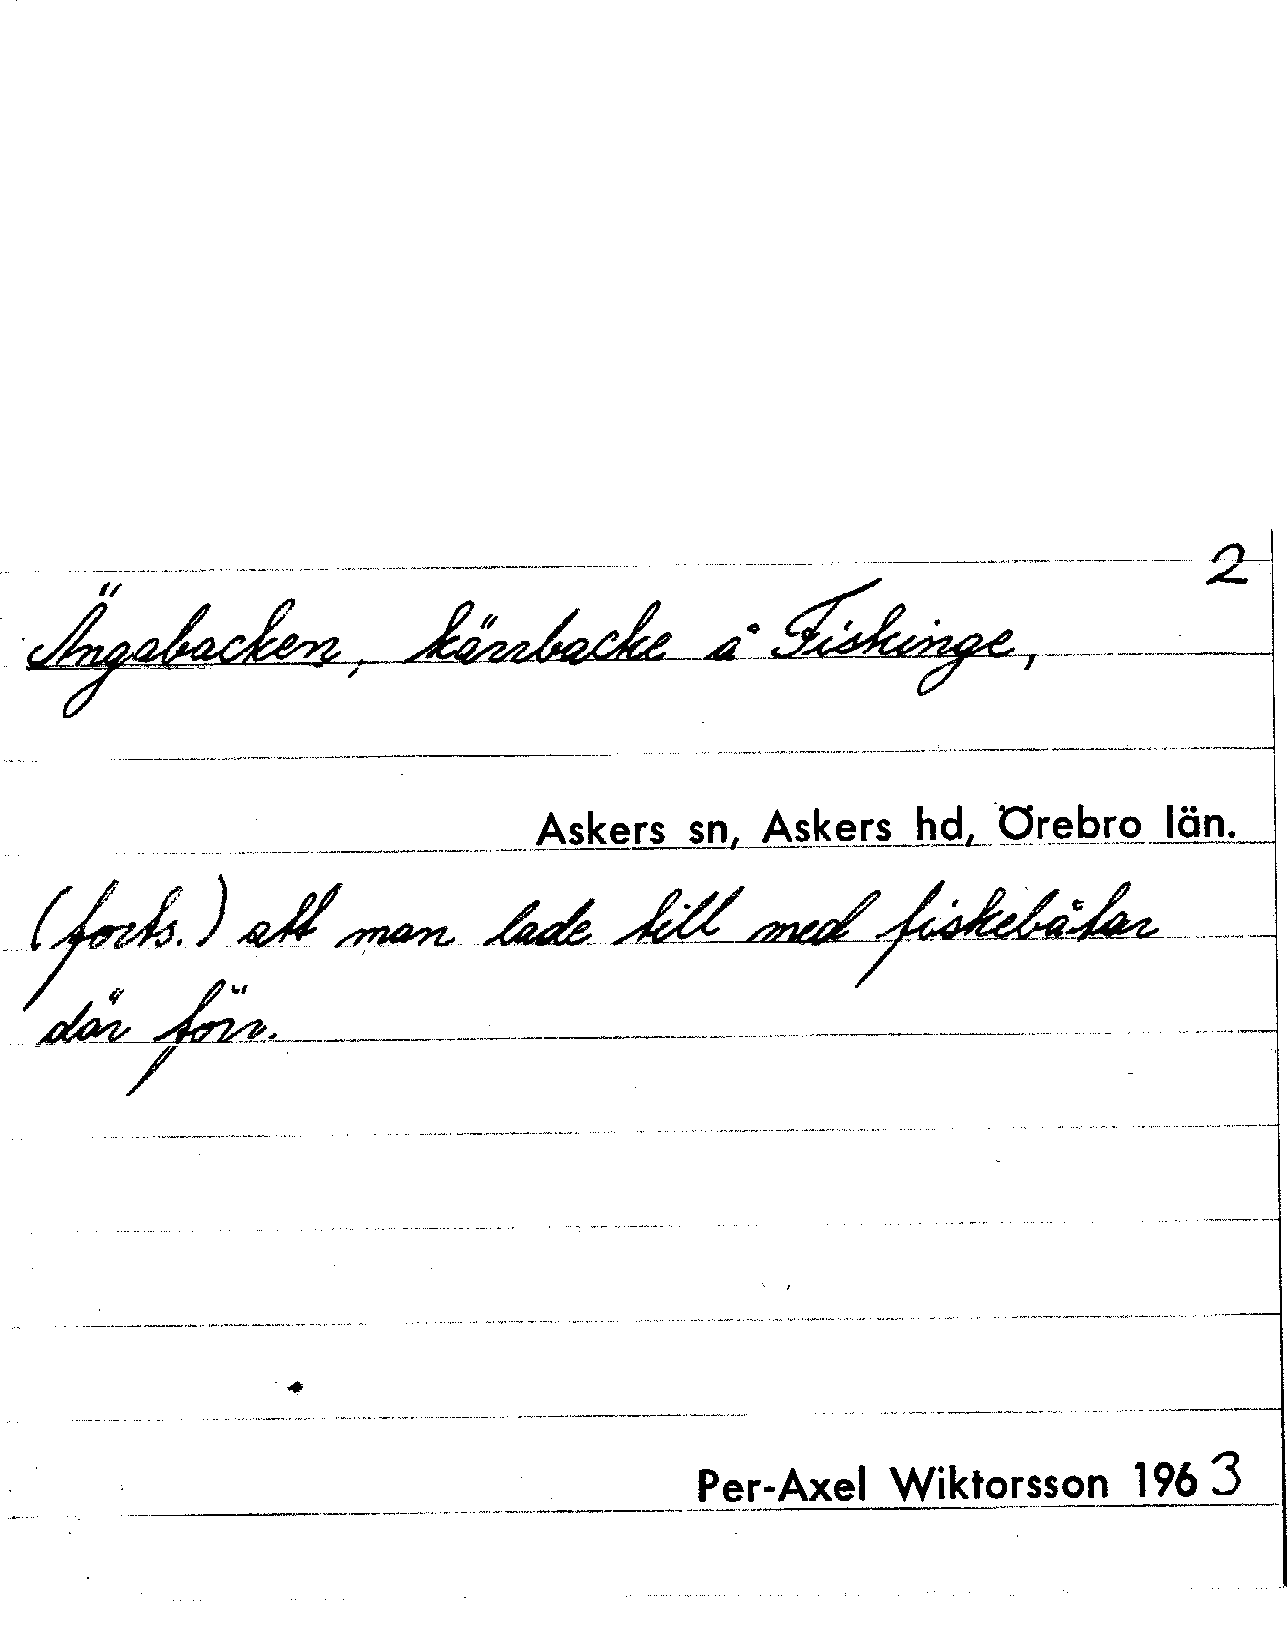 2
Ängabacken, kärrbacke å Fiskinge,
Askers sn, Askers hd, Örebro län.
(forts.) att man lade till med fiskebåtar
där förr.
Per-Axel Wiktorsson 1963